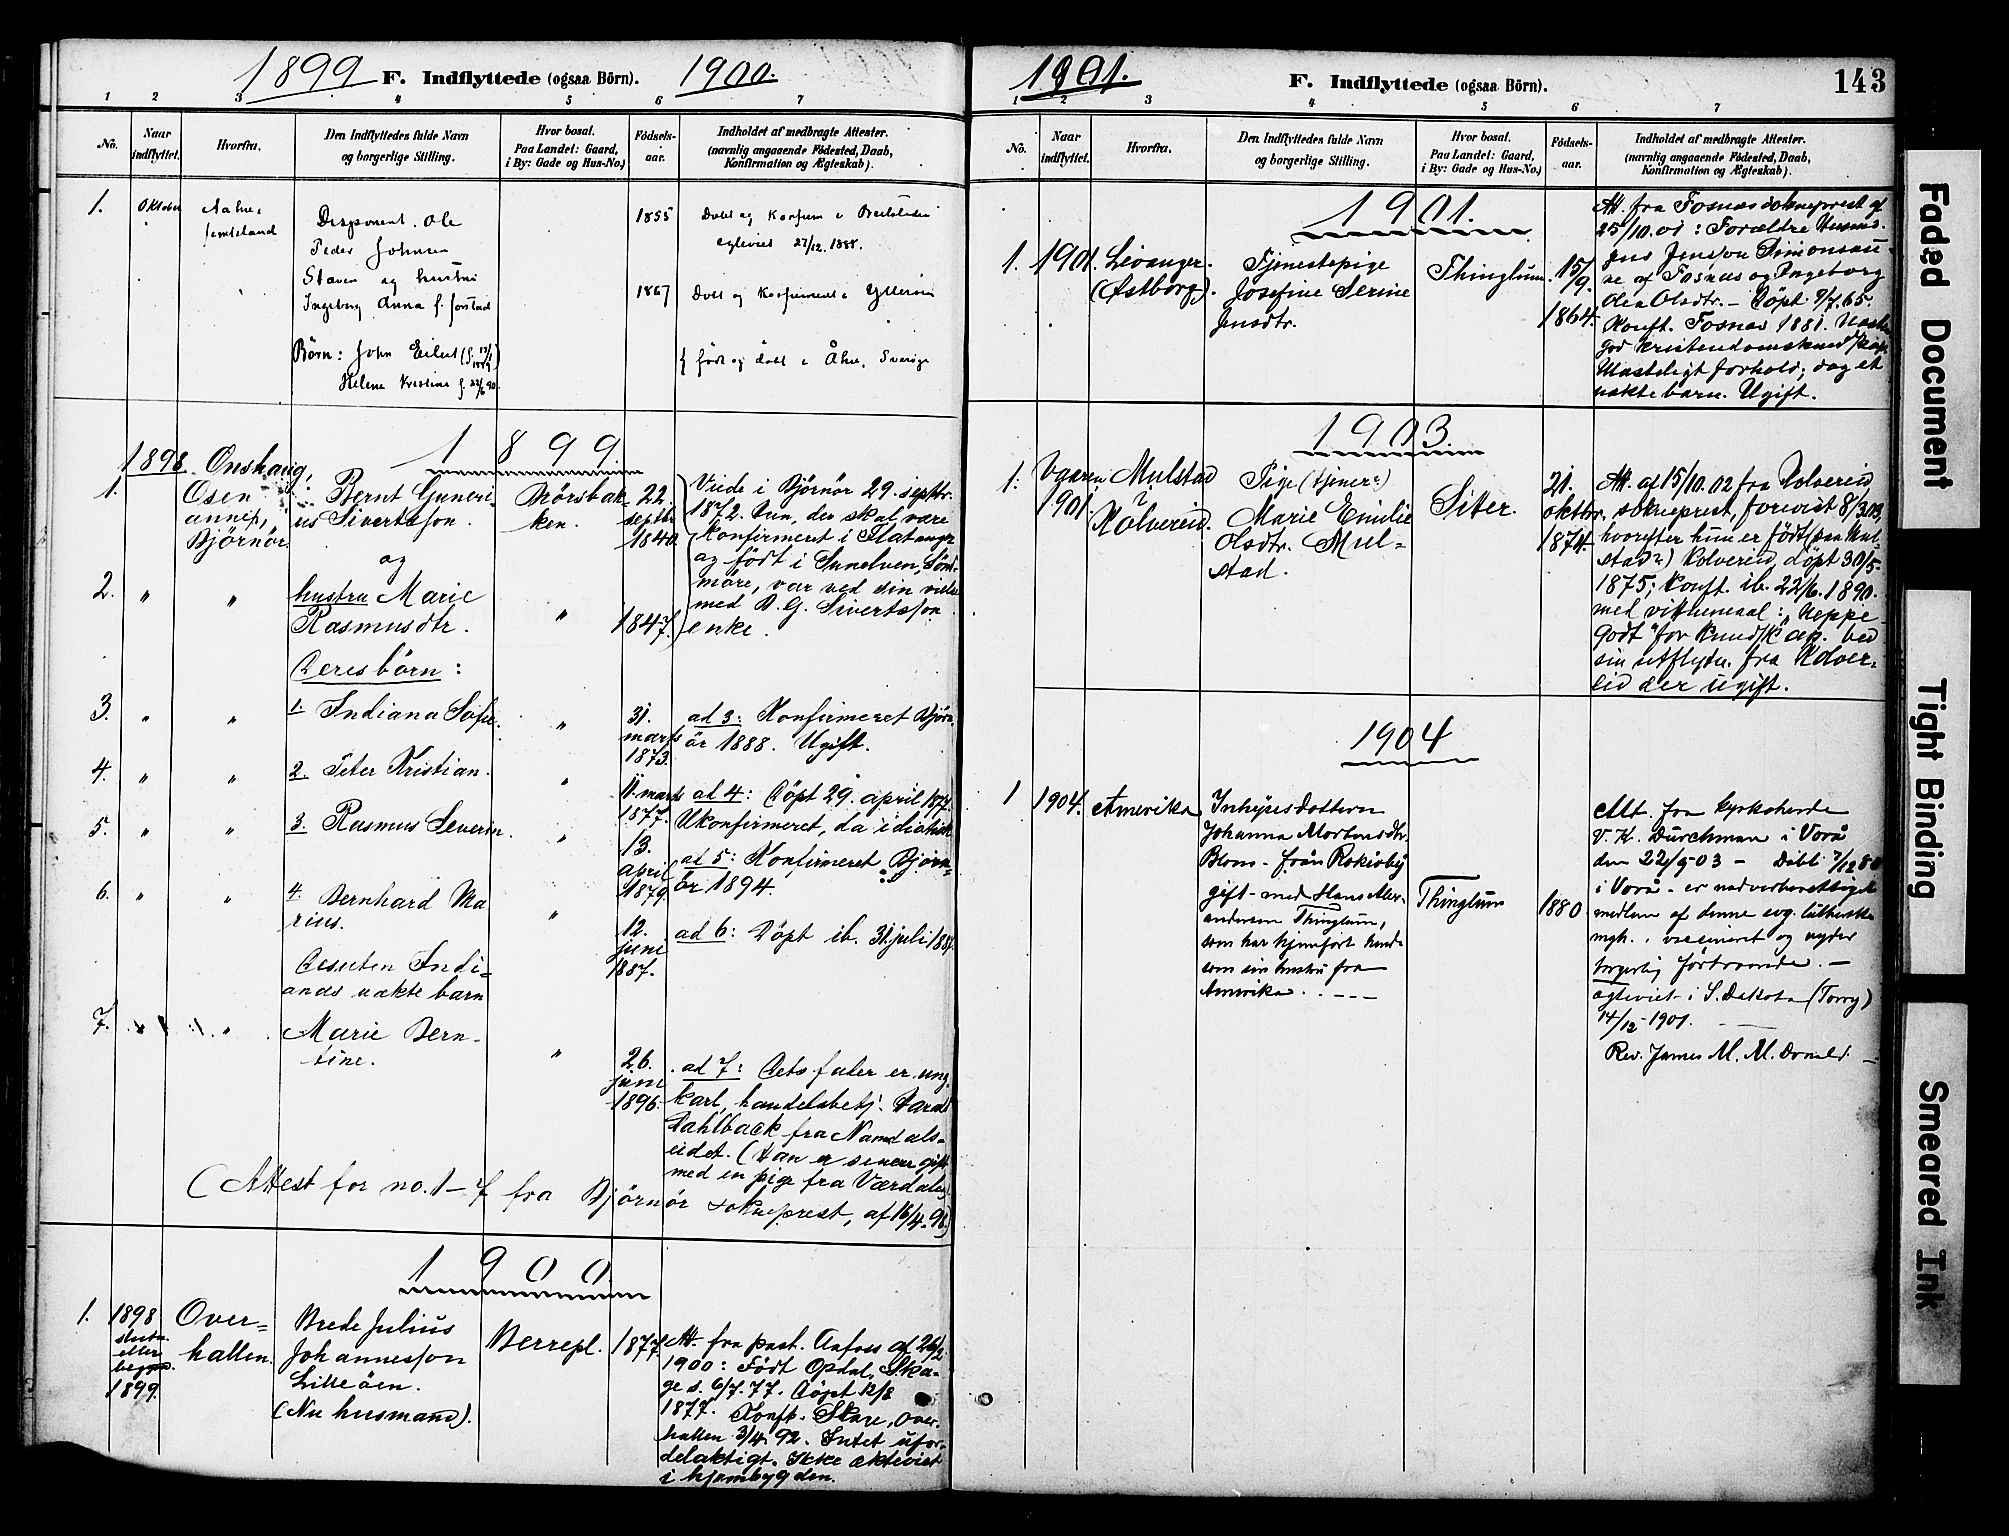 1899 F. Indflyttede (ogsaa Børn). 1900.
1 2 3 4 5 6 7
No.
Naar indflyttet.
Hvorfra.
Den Indflyttedes fulde Navn
og borgerlige Stilling.
Hvor bosat.
Paa Landet: Gaard,
i By: Gade og Hus-No.)
Fødsels-
aar.
Indholdet af medbragte Attester.
(navnlig angaaende Fødested, Daab,
Konfirmation og Ægteskab).
1. Oktober
Jemteland
Disponent Ole
Peder Johnsen
Staven og hustru
Ingeborg Anna f.
Børn: John Eilert
Helene Kristine f. 22/6 90
1855
Døbt og Konfirm i
27/12. 1888.
1867 Døbt og Konfirmeret i Ytterøen
{ født og døbt i Åhre, Sverige
1 8 9 9.
1. 1898 Onshaug,
Osen
annex,
Bjørnør.
Bernt Guneri-
us Sivertsson.
og
Mörsbak-
ken.
22.
septbr
1840.
Viede i Bjørnør 29. septbr.
1872. Hun, der skal være
konfirmeret i Flatanger
og født i Sunelven, Sönd-
möre, var ved sin vielse
med B. G. Sivertsson
enke.
2. " " hustru Marie
Rasmusdtr. " 1847.
Deres börn:
3. " " 1. Indiana Sofie. "
31.
marts
1873.
ad 3: Konfirmeret Björn-
ör 1888. Ugift.
4. " " 2. Peter Kristian. "
11. marts
1877.
ad 4: Döpt 29. april 1877.
Ukonfirmeret, da idiotisk.
5. " " 3. Rasmus Severin. "
13.
april
1879.
ad 5: Konfirmeret Björn-
ör 1894.
6. " " 4. Bernhard Ma
rius. "
12.
juni
1887.
ad 6: Döpt ib. 31 juli 1887.
Desuten Indi-
anas uækte barn
7. " " Marie Bern-
tine. "
26.
juni
1896.
ad 7: Dets fader er ung-
karl, handelsbetj.
Dahlback fra Namdals-
eidet. (Han er senere gift
med en pige fra Værdalen)
(Attest for no. 1-7 fra Björnör sokneprest, af 16/4. 98.)
1 9 0 0
1. 1898
slutn.
eller
begyn.
1899.
Over-
hallen.
Brede Julius
Johannesson
Lilleöen.
(Nu husmand).
Berrepl. 1877.
Att. fra past. Aafoss af 26/2
1900: Født Opdal, Ska-
ge s. 6/7. 77. Döpt 12/8
1877. Konft. Skage, Over-
hallen 3/4. 92. Intet ufor-
delaktigt. Ikke ækteviet
i hjembygden.
1901. F. Indflyttede (ogsaa Børn). 143
1 2 3 4 5 6 7
No.
Naar
indflyttet.
Hvorfra.
Den Indflyttedes fulde Navn
og borgerlige Stilling.
Hvor bosat.
Paa Landet: Gaard,
i By: Gade og Hus-No.)
Fødsels-
aar.
Indholdet af medbragte Attester.
(navnlig angaaende Fødested, Daab,
Konfirmation og Ægteskab).
1901.
1. 1901. Levanger.
(Østborg).
Tjenestepige
Josefine Serine
Jensdtr.
Thinglum.
15/9.
1864.
Att. fra Fosnæs sokneprest af
25/10.01: Forældre Husmd.
Jens Jensson Simonsau-
ne af Fosnæs og Ingeborg
Olea Olsdtr. - Döpt 9/7. 65.
Konft. Fosnæs 1881.
god kristendomskundskap.
Ulasteligt forhold; dog et
uækte barn. Ugift.
1903.
1. Vaaren
1901.
Mulstad
Kolvereid.
Pige (tjener)
Marie Emilie
Olsdtr. Mul-
stad.
Siter.
21.
oktbr.
1874.
Att. af 15/10.02 fra Kolvereid
sokneprest, forevist 8/3.03,
hvorefter hun er født (paa Mul-
stad?) Kolvereid, döpt 30/5.
1875; konft. ib. 22/6. 1890.
med vitnemaal: "Neppe
Godt" for kundskap. Ved
sin utflytn. fra Kolver-
eid der ugift.
1904
1 1904. Amerika
Inhysesdottern
Johanna Mortensdtr.
Blom - från Rokioby
gift med Hans Alex-
andersen Thinglum,
som har hjemført hende
som sin hustru fra
Amerika. . - - -
Thinglum
1880.
Att. fra kyrkoherde
V. K. Durchman i Vörå
den 22/9-03 - Döbt 7/12 80
i Vörå - er nadverberettiget
medlem af denne evg. lutherske
mgh., vaccineret og nyder
borgerlig förtroende. -
ægteviet i S. Dakota (Torry)
14/12-1901.
Rev. James M. M. Donald. -
Faded Document
Tight Binding
Smeared Ink